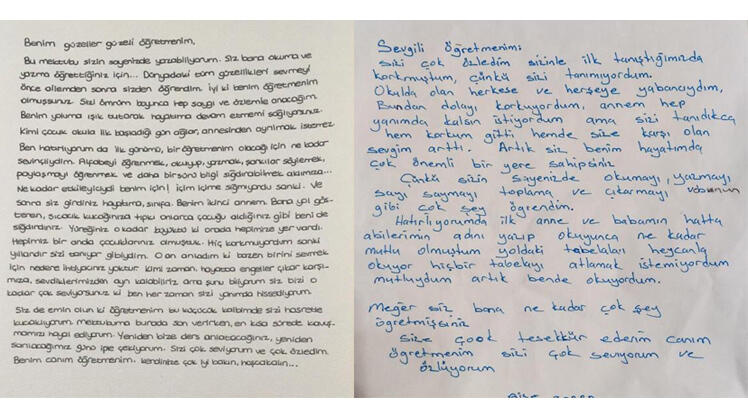 Benim güzeller güzeli öğretmenim,
Bu mektubu sizin sayenizde yazabiliyorum. Siz bana okuma ve
yazma öğrettiğiniz için... Dünyadaki tüm güzellikleri sevmeyi
önce ailemden sonra sizden öğrendim. İyi ki benim öğretmenim
olmuşsunuz. Sizi ömrüm boyunca hep saygı ve özlemle anacağım.
Benim yoluma ışık tutarak hayatıma devam etmemi sağlıyorsunuz.
Kimi çocuk okula ilk başladığı gün ağlar, annesinden ayrılmak istemez
Ben hatırlıyorum da ilk günümü, bir öğretmenim olacağı için ne kadar
sevinçliydim. Alfabeyi öğrenmek, okuyup, yazmak, şarkılar söylemek,
paylaşmayı öğrenmek ve daha birsürü bilgi sığdırabilmek aklımıza...
Ne kadar etkileyiciydi benim için! İçim içime sığmıyordu sanki. Ve
sonra siz girdiniz hayatıma, sınıfa. Benim ikinci annem. Bana yol gös-
teren, sıcacık kucağınıza tıpkı onlarca çocuğu aldığınız gibi beni de
sığdırdınız. Yüreğiniz o kadar büyüktü ki orada hepimize yer vardı.
Hepimiz bir anda çocuklarınız olmuştuk. Hiç korkmuyordum sanki
yıllardır sizi tanıyor gibiydim. O an anladım ki bazen birini sevmek
için nedene ihtiyacınız yoktur. Kimi zaman, hayatta engeller çıkar karşı-
mıza, sevdiklerimizden ayrı kalabiliriz ama şunu biliyorum siz bizi o
kadar çok seviyorsunuz ki ben her zaman sizi yanımda hissediyorum.
Siz de emin olun ki öğretmenim bu küçücük kalbimde sizi hasretle
kucaklıyorum. Mektubuma burada son verirken, en kısa sürede kavuş-
mamızı hayal ediyorum. Yeniden bize ders anlatacağınız, yeniden
sarılacağımız günü iple çekiyorum. Sizi çok seviyorum ve çok özledim.
Benim canım öğretmenim. Kendinize çok iyi bakın, hoşçakalın...
Sevgili öğretmenim:
sizi çok özledim sizinle ilk tanıştığımızda
korkmuştum, çünkü sizi tanımıyordum.
Okulda olan herkese ve herşeye yabancıydım,
Bundan dolayı korkuyordum, annem hep
yanımda kalsın istiyordum ama sizi tanıdıkca
hem korkum gitti hemde size karşı olan
sevgim arttı. Artık siz benim hayatımda
çok önemli bir yere sahipsiniz
Çünkü sizin sayenizde okumayı, yazmayı
sayı saymayı toplama ve çıkarmayı vebunun
gibi çok şey öğrendim.
Hatırlıyorumda ilk anne ve babamın hatta
abilerimin adını yazıp okuyunca ne kadar
mutlu olmuştum yoldaki tabelaları heycanla
okuyor hiçbir tabelayı atlamak istemiyordum
mutluydum artık bende okuyordum.
Meğer siz bana ne kadar çok şey
öğretmişsiniz
Size çook teşekkür ederim canım
öğretmenim sizi çok seviyorum ve
özlüyorum